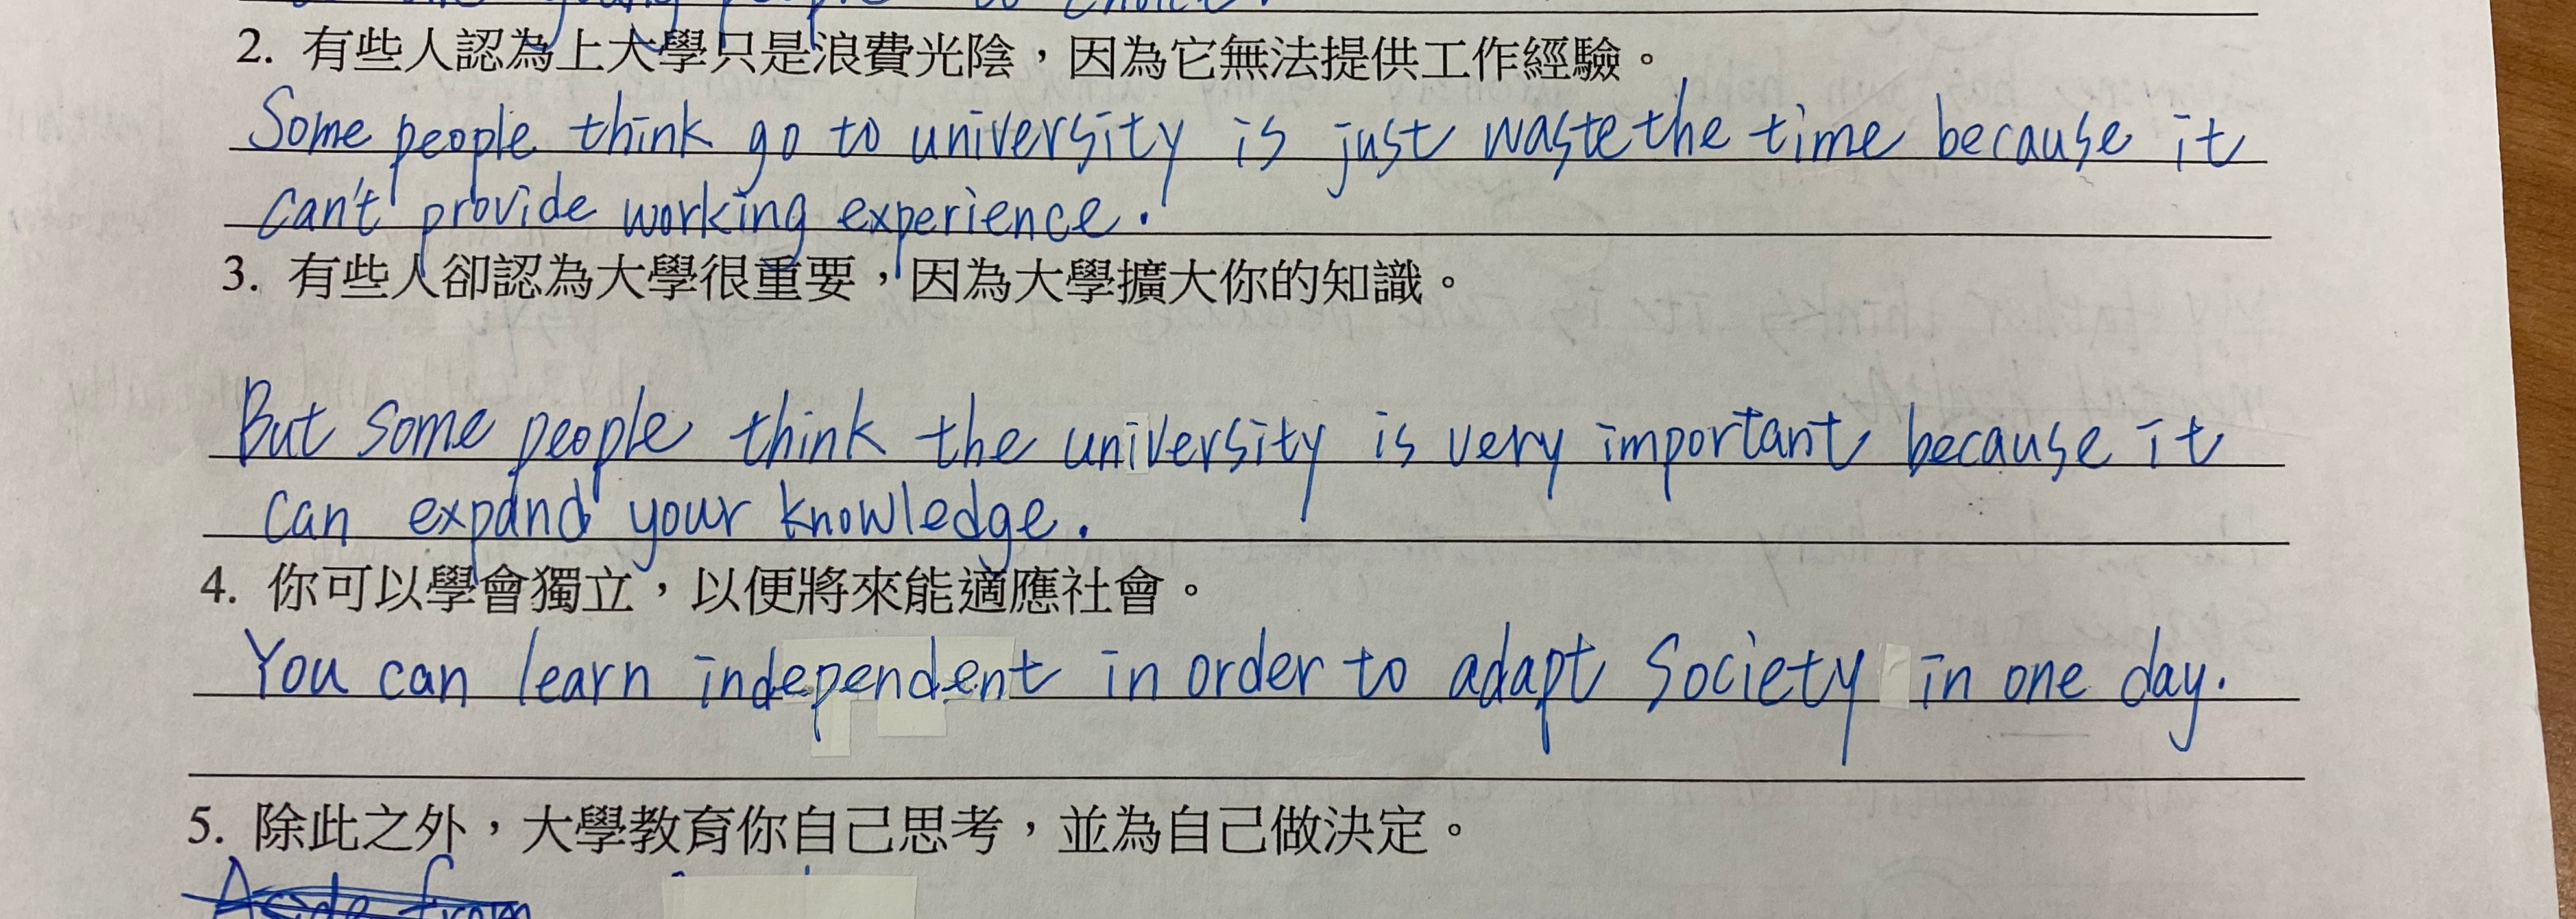 2. 有些人認為上大學只是浪費光陰，因為它無法提供工作經驗。
Some people think go to university is just waste the time because it
can't provide working experience.
3. 有些人卻認為大學很重要，因為大學擴大你的知識。
But some people think the university is very important because it
can expand your knowledge.
4. 你可以學會獨立，以便將來能適應社會。
You can learn independent in order to adapt Society in one day.
5. 除此之外，大學教育你自己思考，並為自己做決定。